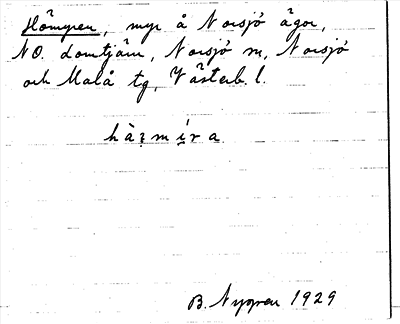 Hömyren, myr å Norsjö ägor,
NO. Lomtjärn, Norsjö sn, Norsjö
och Malå tg, Västerb. l.
B. Nygren 1929